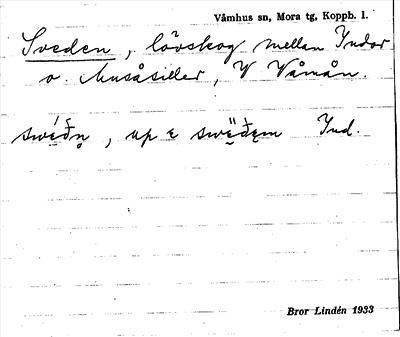 Våmhus sn, Mora tg, Koppb. l.
Sveden, lövskog mellan Indor
o. Musåsiller, V Våmån.
, up ε Ind.
Bror Lindén 1933